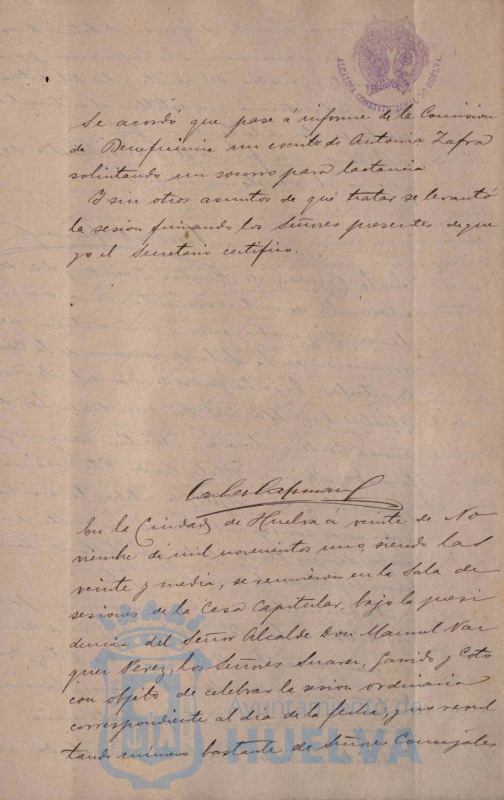 ALCALDIA CONSTITUCIONAL DE HUELVA
Se acordó que pase á informe de la Comision
de Beneficencia un escrito de Antonia Zafra
solicitando un socorro para lactancia
Y sin otros asuntos de qué tratar se levantó
la sesion firmando los Señores presentes de que
yo el Secretario certifico.
En la Ciudad de Huelva á veinte de No
viembre de mil novecientos uno, siendo las
veinte y media, se reunieron en la Sala de
sesiones de la Casa Capitular, bajo la presi
dencia del Señor Alcalde Don Manuel Vaz
quez Perez, los Señores Suarez, Garrido y Coto
con objeto de celebrar la sesion ordinaria
correspondiente al dia de la fecha, y no resul
tando número bastante de Señores Concejales
Ayuntamiento de
HUELVA